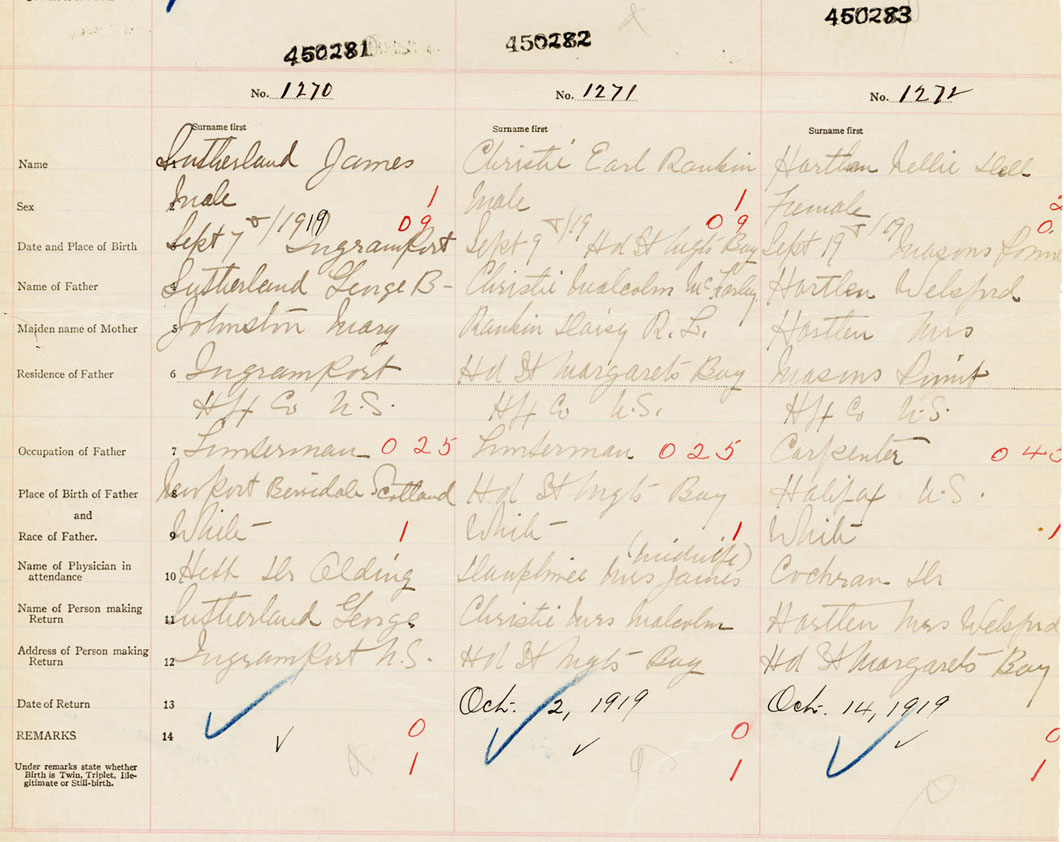 450281 450282 450283
No. 1270 No. 1271 No. 1272
Surname first Surname first Surname first
Name 1 Sutherland James Christie Earl Rankin Hartlen Nellie
Sex 2 Male 1 Male 1 Female 2
09 09 0
Date and Place of Birth Sept 7th/1919 Ingramport Sept 9th/19 Hd St Mgts Bay Sept 19th/19 Masons Point
Name of Father 4 Sutherland George B- Christie Malcolm Hartlen Welsford
Maiden name of Mother 5 Johnston Mary Rankin Daisy R. L. Hartlen Mrs
Residence of Father 6 Ingramport Hd St Margarets Bay Masons Point
Hfx Co N.S. Hfx Co N.S. Hfx Co N.S.
Occupation of Father 7 Limberman 025 Limberman 025 Carpenter 04
Place of Birth of Father 8 Newport Scotland Hd St Mgts Bay Halifax N.S.
and
Race of Father. 9 White 1 White 1 White 1
(midwife)
Name of Physician in
attendance 10 Dr Olding Dauphinee Mrs James Cochran Dr
Name of Person making
Return 11 Sutherland George Christie Mrs Malcolm Hartlen Mrs Welsford
Address of Person making
Return 12 Ingramport N.S. Hd St Mgts Bay Hd St Margarets Bay
Date of Return 13 Oct. 2, 1919 Oct. 14, 1919
REMARKS 14 0 0 0
Under remarks state whether
Birth is Twin, Triplet, Ille-
gitimate or Still-birth. 1 1 1